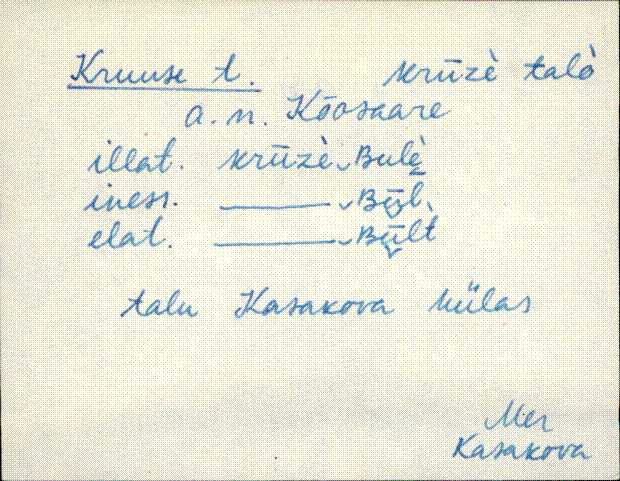 Kruuse t. krūzè talò
a. n. Kõosaare
illat. krūzè ᴗ Bulè
iness. ——— ᴗ Būl.
elat. ——— ᴗ Būlt
talu Kasakova külas
Mer
Kasakova